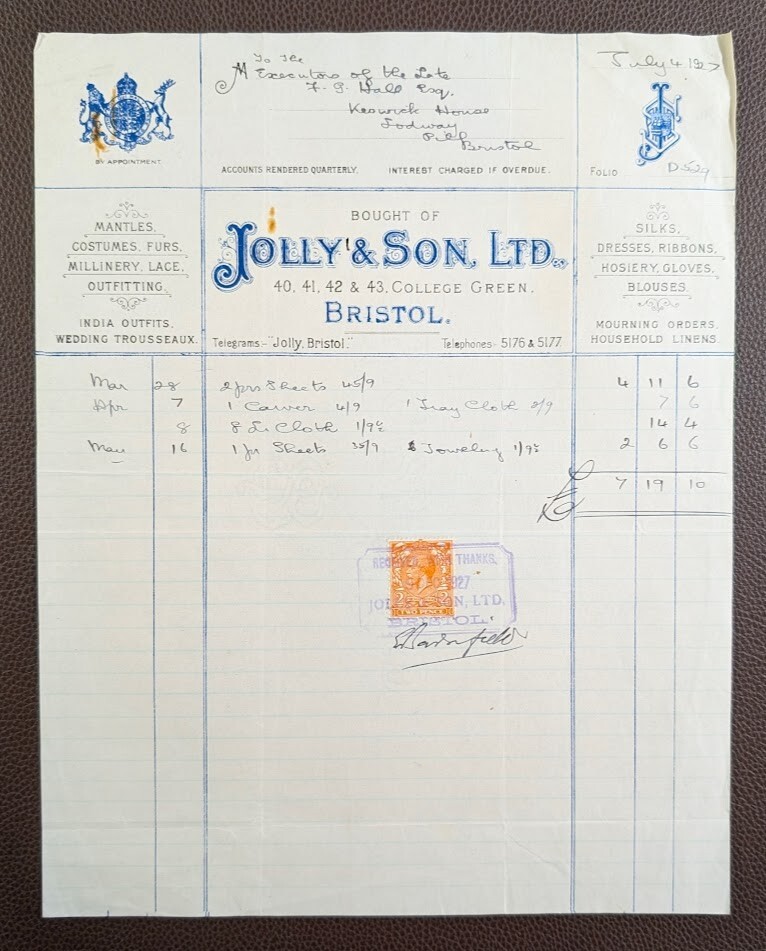 To the
M Executors of the Late
F. G. Hall Esq.
Keswick House
Lodway
Pill
Bristol
July 4 1927
BY APPOINTMENT.
ACCOUNTS RENDERED QUARTERLY. INTEREST CHARGED IF OVERDUE.
FOLIO D529
MANTLES,
COSTUMES, FURS,
MILLINERY, LACE,
OUTFITTING.
INDIA OUTFITS,
WEDDING TROUSSEAUX.
BOUGHT OF
JOLLY & SON, LTD.,
40, 41, 42 & 43, COLLEGE GREEN.
BRISTOL.
Telegrams:- "Jolly, Bristol." Telephones:- 5176 & 5177
SILKS,
DRESSES, RIBBONS,
HOSIERY, GLOVES,
BLOUSES.
MOURNING ORDERS,
HOUSEHOLD LINENS
Mar 28 2 prs Sheets 45/9 4 11 6
Apr 7 1 Carver 4/9 1 Tray Cloth 2/9 7 6
8 8 Cloth 1/9½ 14 4
May 16 1 pr Sheets 35/9 6 Toweling 1/9½ 2 6 6
£ 7 19 10
RECEIVED WITH THANKS,
1927
JOLLY & SON, LTD.
BRISTOL.
TWO PENCE